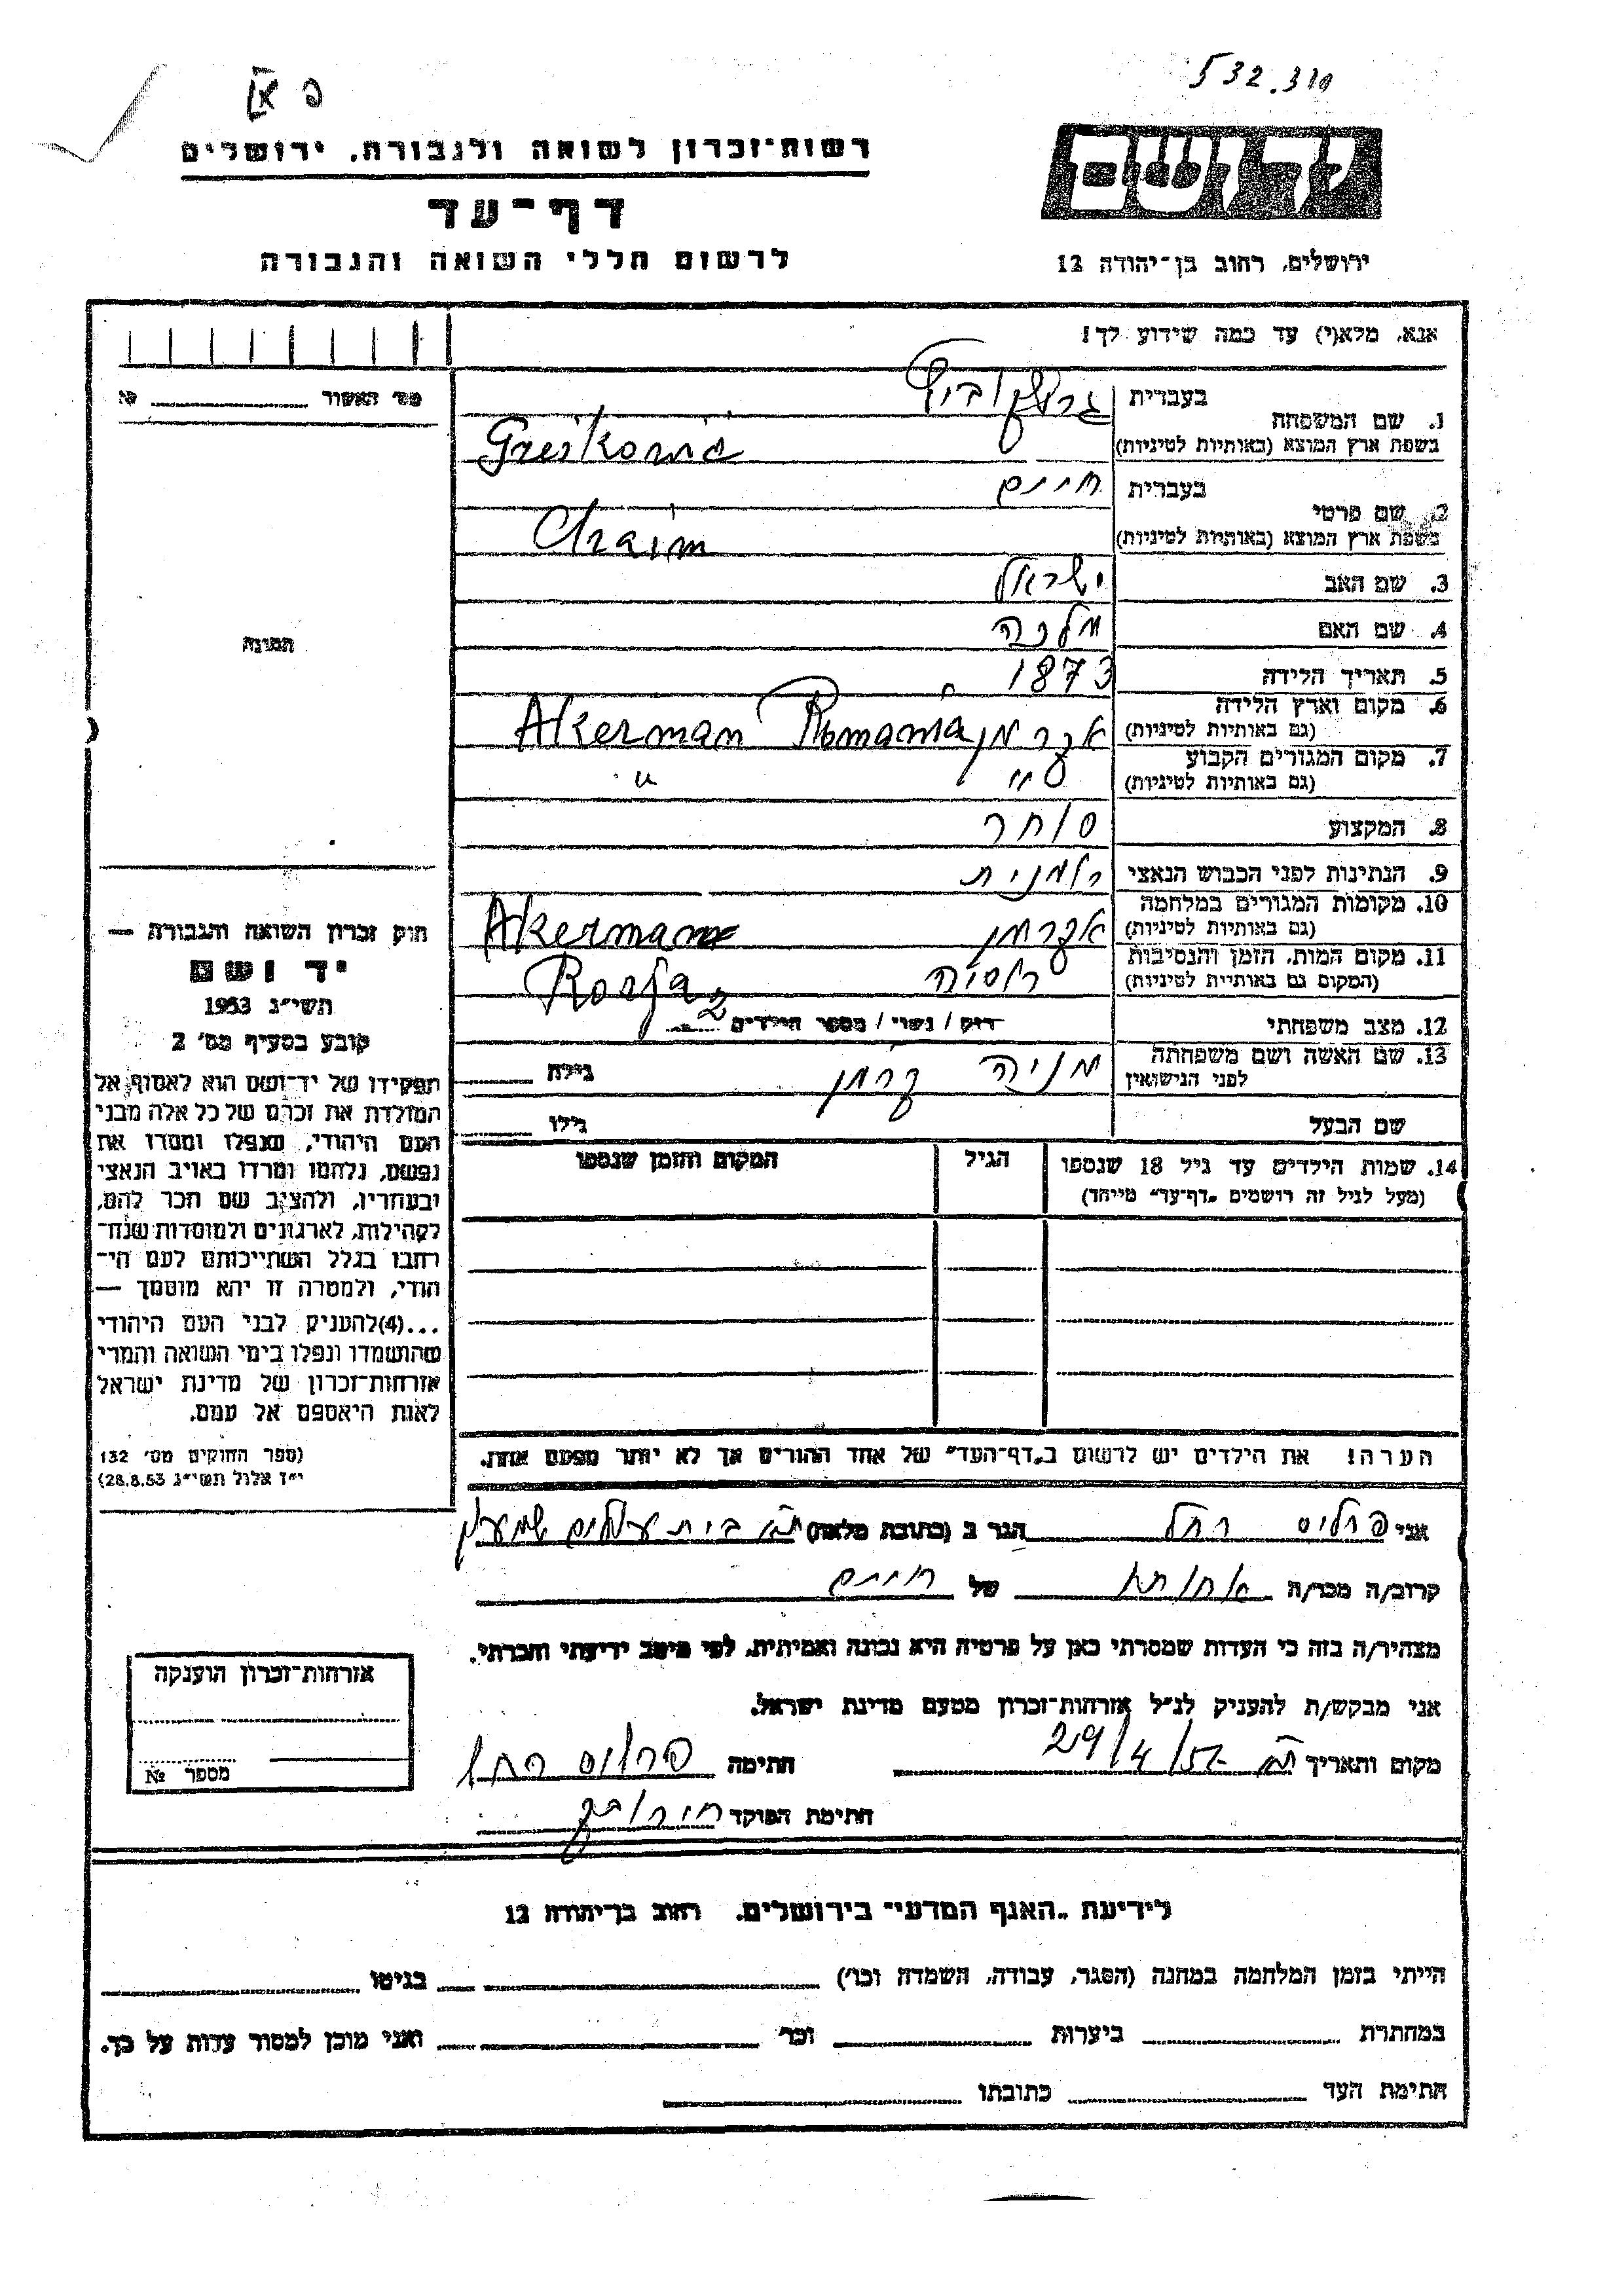 532.310
פ א
רשות־זכרון לשואה ולגבורה, ירושלים
דף־עד
לרשום חללי השואה והגבורה
ידושם
ירושלים, רחוב בן־יהודה 12
אנא, מלא(י) עד כמה שידוע לך!
מס' האשור №
1. שם המשפחה
בעברית
בשפת ארץ המוצא (באותיות לטיניות)
2. שם פרטי
בעברית חיים
בשפת ארץ המוצא (באותיות לטיניות) Chaim
3. שם האב ישראל
4. שם האם מלכה
5. תאריך הלידה 1873
6. מקום וארץ הלידה (גם באותיות לטיניות) אקרמן Akerman Romania
7. מקום המגורים הקבוע (גם באותיות לטיניות) " "
8. המקצוע סוחר
9. הנתינות לפני הכבוש הנאצי רומנית
10. מקומות המגורים במלחמה (גם באותיות לטיניות) אקרמן Akerman
11. מקום המות, הזמן והנסיבות (המקום גם באותיית לטיניות) רוסיה Rosja
12. מצב משפחתי רווק / נשוי / מספר הילדים 2
13. שם האשה ושם משפחתה לפני הנישואין מניה קרמן גילה
שם הבעל גילו
14. שמות הילדים עד גיל 18 שנספו (מעל לגיל זה רושמים „דף־עד" מייחד)
הגיל
המקום והזמן שנספו
הערה! את הילדים יש לרשום ב„דף־העד" של אחד ההורים אך לא יותר מפעם אחת.
תמונה
חוק זכרון השואה והגבורה —
יד ושם
תשי"ג 1953
קובע בסעיף מס' 2
תפקידו של יד־ושם הוא לאסוף אל
המולדת את זכרם של כל אלה מבני
העם היהודי, שנפלו ומסרו את
נפשם, נלחמו ומרדו באויב הנאצי
ובעוזריו, ולהציב שם וזכר להם,
לקהילות, לארגונים ולמוסדות שנח־
רבו בגלל השתייכותם לעם הי־
הודי, ולמטרה זו יהא מוסמך —
...(4) להעניק לבני העם היהודי
שהושמדו ונפלו בימי השואה והמרי
אזרחות־זכרון של מדינת ישראל
לאות היאספם אל עמם.
(ספר החוקים מס' 132
י"ז אלול תשי"ג 28.8.53)
אני פרליס רחל הגר ב (כתובת מלאה) ת"א בית עולים
קרוב/ה מכר/ה אחותו של חיים
מצהיר/ה בזה כי העדות שמסרתי כאן על פרטיה היא נכונה ואמיתית, לפי מיטב ידיעתי והכרתי.
אני מבקש/ת להעניק לנ"ל אזרחות־זכרון מטעם מדינת ישראל.
מקום ותאריך ת"א 29/4/57 חתימה פרליס רחל
חתימת הפוקד
אזרחות־זכרון הוענקה
מספר №
לידיעת „האגף המדעי" בירושלים. רחוב בן־יהודה 12
הייתי בזמן המלחמה במחנה (הסגר, עבודה, השמדה וכו') בגיטו
במחתרת ביערות וכו' ואני מוכן למסור עדות על כך.
חתימת העד כתובתו